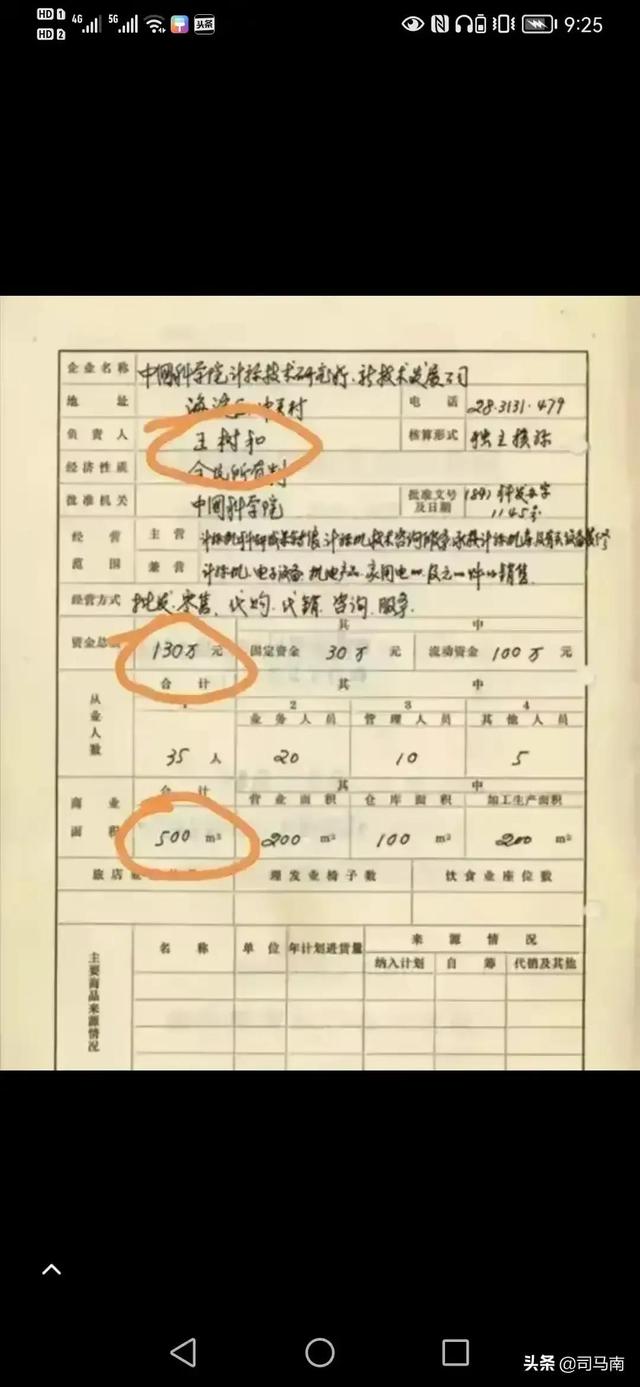 HD 1 4G 5G 头条 9:25
HD 2
企业名称 中国科学院计算技术研究所新技术发展公司
地址 海淀区中关村 电话 28.3131.479
负责人 王树和 核算形式 独立核算
经济性质 全民所有制
批准机关 中国科学院 批准文号及日期
经营范围 主营 计算机科研成果
兼营 计算机、电子设备、机电产品、家用电 销售
经营方式 批发、零售、代购、代销、咨询、服务
其中
资金总额 130万元 固定资金 30万元 流动资金 100万元
从业人数 合计 其中
1 2 业务人员 3 管理人员 4 其他人员
35人 20 10 5
商业面积 合计 其中
营业面积 仓库面积 加工生产面积
500 m² 200 m² 100 m² 200 m²
旅店 理发业椅子数 饮食业座位数
主要商品来源情况 名称 单位 年计划进货量 来源情况
纳入计划 自筹 代销及其他
头条 @司马南